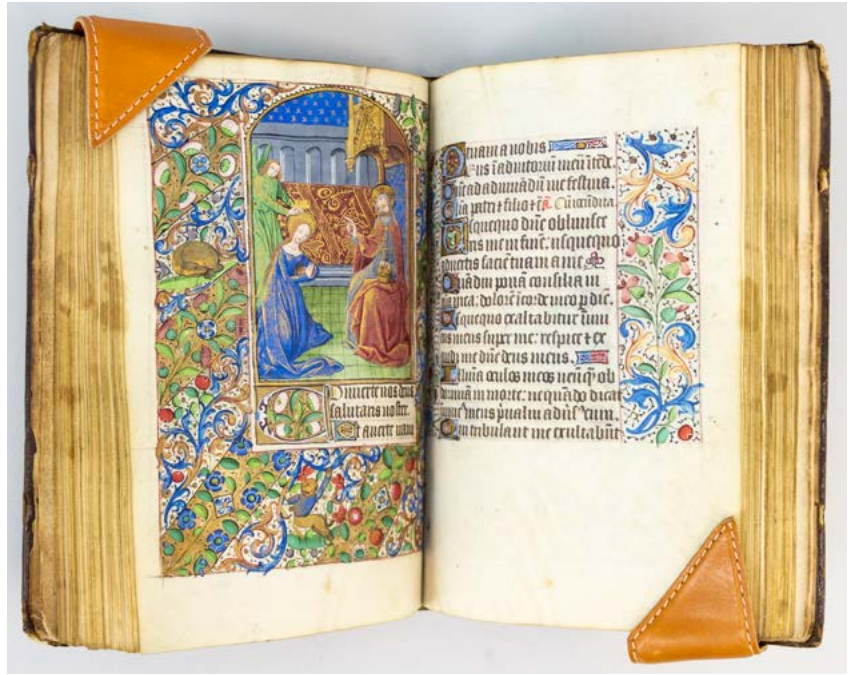 Onuerte nos deus
salutaris noster.
Et auerte iram
tuam a nobis
Deus ī adiutoriū meū ītēde.
Dñe ad adiuuādū me festina.
Glia patri et filio et
Usquequo dñe obliuisce
ris me in finē: usquequo
auertis faciē tuam a me
Quādiu ponā consilia in
aīa mea: dolorē ī corde meo p diē.
Usquequo exaltabitur inimi
cus meus super me: respice et ex
audi me dñe deus meus.
Illūia oculos meos neūq̄ ob
dormiā in morte: nequādo dicat
meus preualui adūs eum.
Qui tribulant me exultabūt